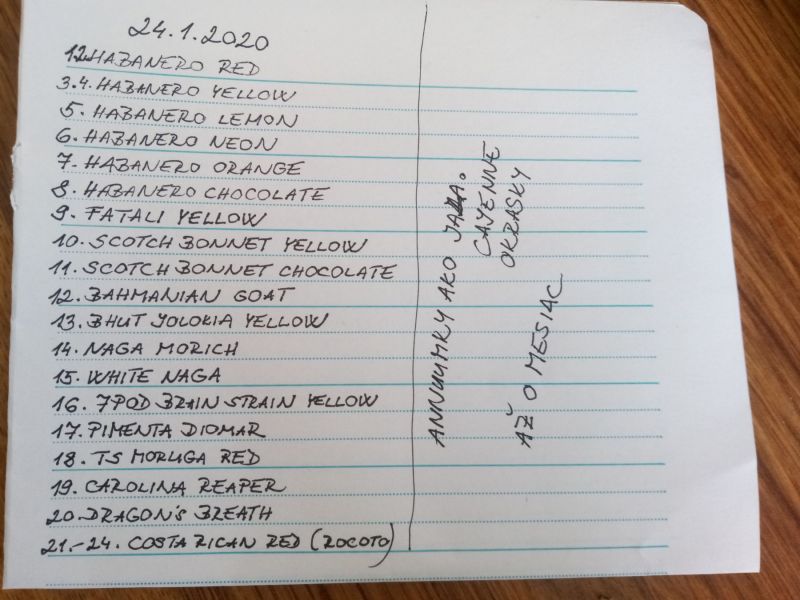 24.1.2020
1.2. HABANERO RED
3.4. HABANERO YELLOW
5. HABANERO LEMON
6. HABANERO NEON
7. HABANERO ORANGE
8. HABANERO CHOCOLATE
9. FATALI YELLOW
10. SCOTCH BONNET YELLOW
11. SCOTCH BONNET CHOCOLATE
12. BAHMANIAN GOAT
13. BHUT JOLOKIA YELLOW
14. NAGA MORICH
15. WHITE NAGA
16. 7POD BRAIN STRAIN YELLOW
17. PIMENTA DIOMAR
18. TS MORUGA RED
19. CAROLINA REAPER
20. DRAGON'S BREATH
21.-24. COSTA RICAN RED (ROCOTO)
AKO
CAYENNE
OKRASKY
AŽ O MESIAC